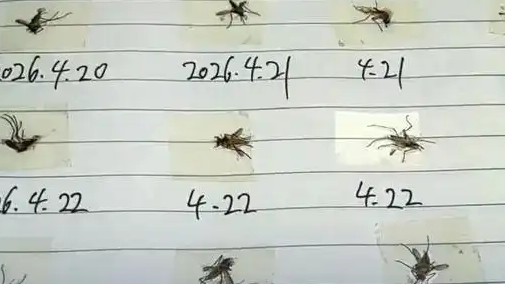 026.4.20 2026.4.21 4.21
6.4.22 4.22 4.22